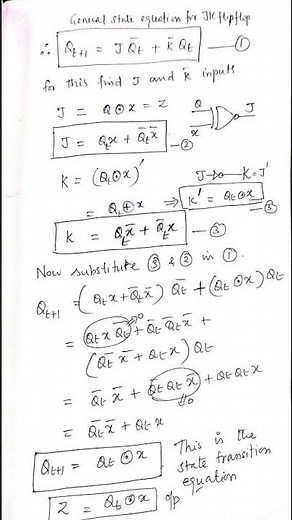 General state equation for JK flipflop
∴ Q_{t+1} = J Q̄_t + K̄ Q_t — ①
for this find J and K inputs.
J = Q⊙x = z   Q x J
J = Q_t x + Q̄_t x̄ — ②
K = (Q_t⊙x)'   J K = J'
= Q_t ⊕ x ⇒ K' = Q_t ⊙ x — ③
K = Q_t x̄ + Q̄_t x — ③
Now substitute ③ & ② in ①.
Q_{t+1} = (Q_t x + Q̄_t x̄) Q̄_t + (Q_t ⊙ x) Q_t
= Q_t x Q̄_t →0 + Q̄_t Q̄_t x̄ +
(Q̄_t x̄ + Q_t x) Q_t
= Q̄_t x̄ + Q̄_t Q_t x̄ →0 + Q_t Q_t x
= Q̄_t x̄ + Q_t x
Q_{t+1} = Q_t ⊙ x   This is the
state transition
equation
Z = Q_t ⊙ x o/p